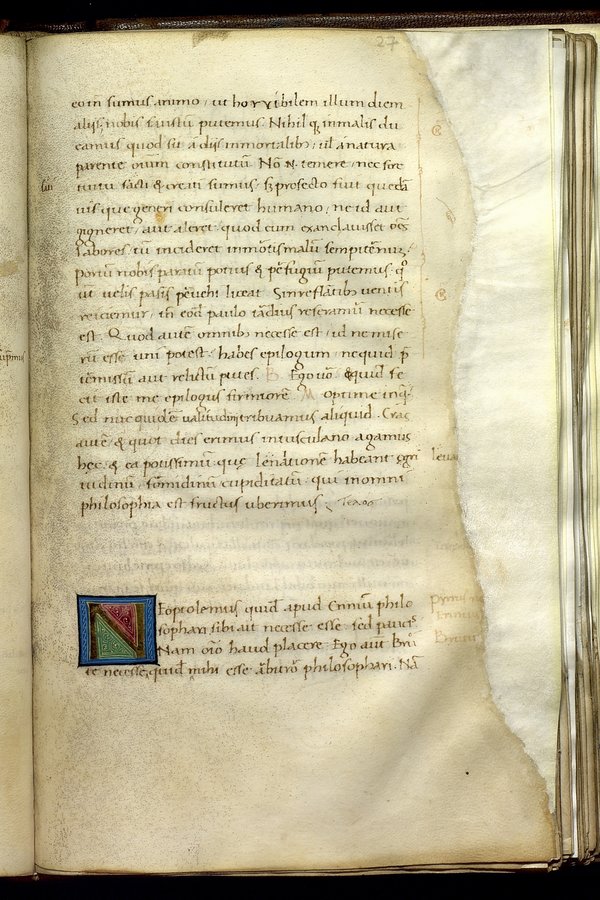 27
eo in sumus animo, ut horribilem illum diem
aliis, nobis faustū putemus. Nihil q; in malis du
camus quod sit a diis inmortalib; ul' a natura
parente omīum constitutū. Nō .N. temere, nec fore
tuitu sati & creati sumus. s; profecto fuit quedā
uis que generi consuleret humano, ne id aut
gigneret, aut aleret quod cum exanclauisset oēs
labores, tū incideret in mortis malū sempiternū.
Portū nobis paratū potius & pfugiū putemus. qº
utinā uelis pasis peruehi liceat. Sin reflātib; uentis
reiciemur, tn eod paulo tardius referamur necesse
est. Quod autē omnib; necesse est, id ne mise
rū esse uni potest. habes epilogum, ne quid p̄
termissū aut relictū putes. Ego uo. & quid fe
cit iste me epilogus firmiorē. M Optime inq.
Sed nūc quidē ualitudini tribuamus aliquid. Cras
autē & quot dies erimus in tusculano agamus
hęc. & ea potissimū quę leuationē habeant ęgri
tudinū, formidinū cupiditatū. qui in omni
philosophia est fructus uberrimus. τελος
Neoptolemus quid' apud Enniū philo
sophari sibi ait necesse esse. sed paucis.
Nam oīo haud placere. Ego aut Bru
te necesse quid' mihi esse arbitror philosophari. Nā
Pyrrus
Ennius
Brutus